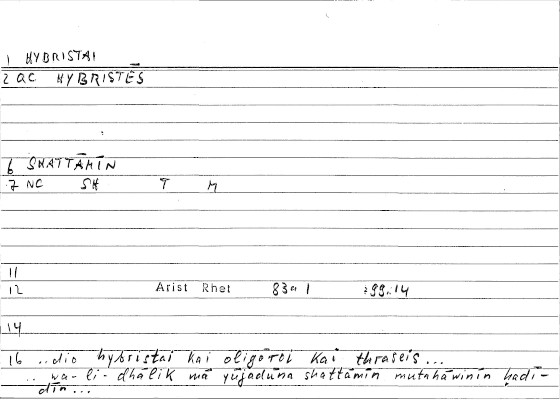 1 HYBRISTAI
2 QC HYBRISTĒS
6 SHATTĀMĪN
7 NC SH T M
11
12 Arist Rhet 83a 1 299.14
14
16 ..dio hybristai kai oligōroi kai thraseis...
.. wa-li-dhālik mā yūjadūna shattāmīn mutahāwinīn ḥadī-
dīn...